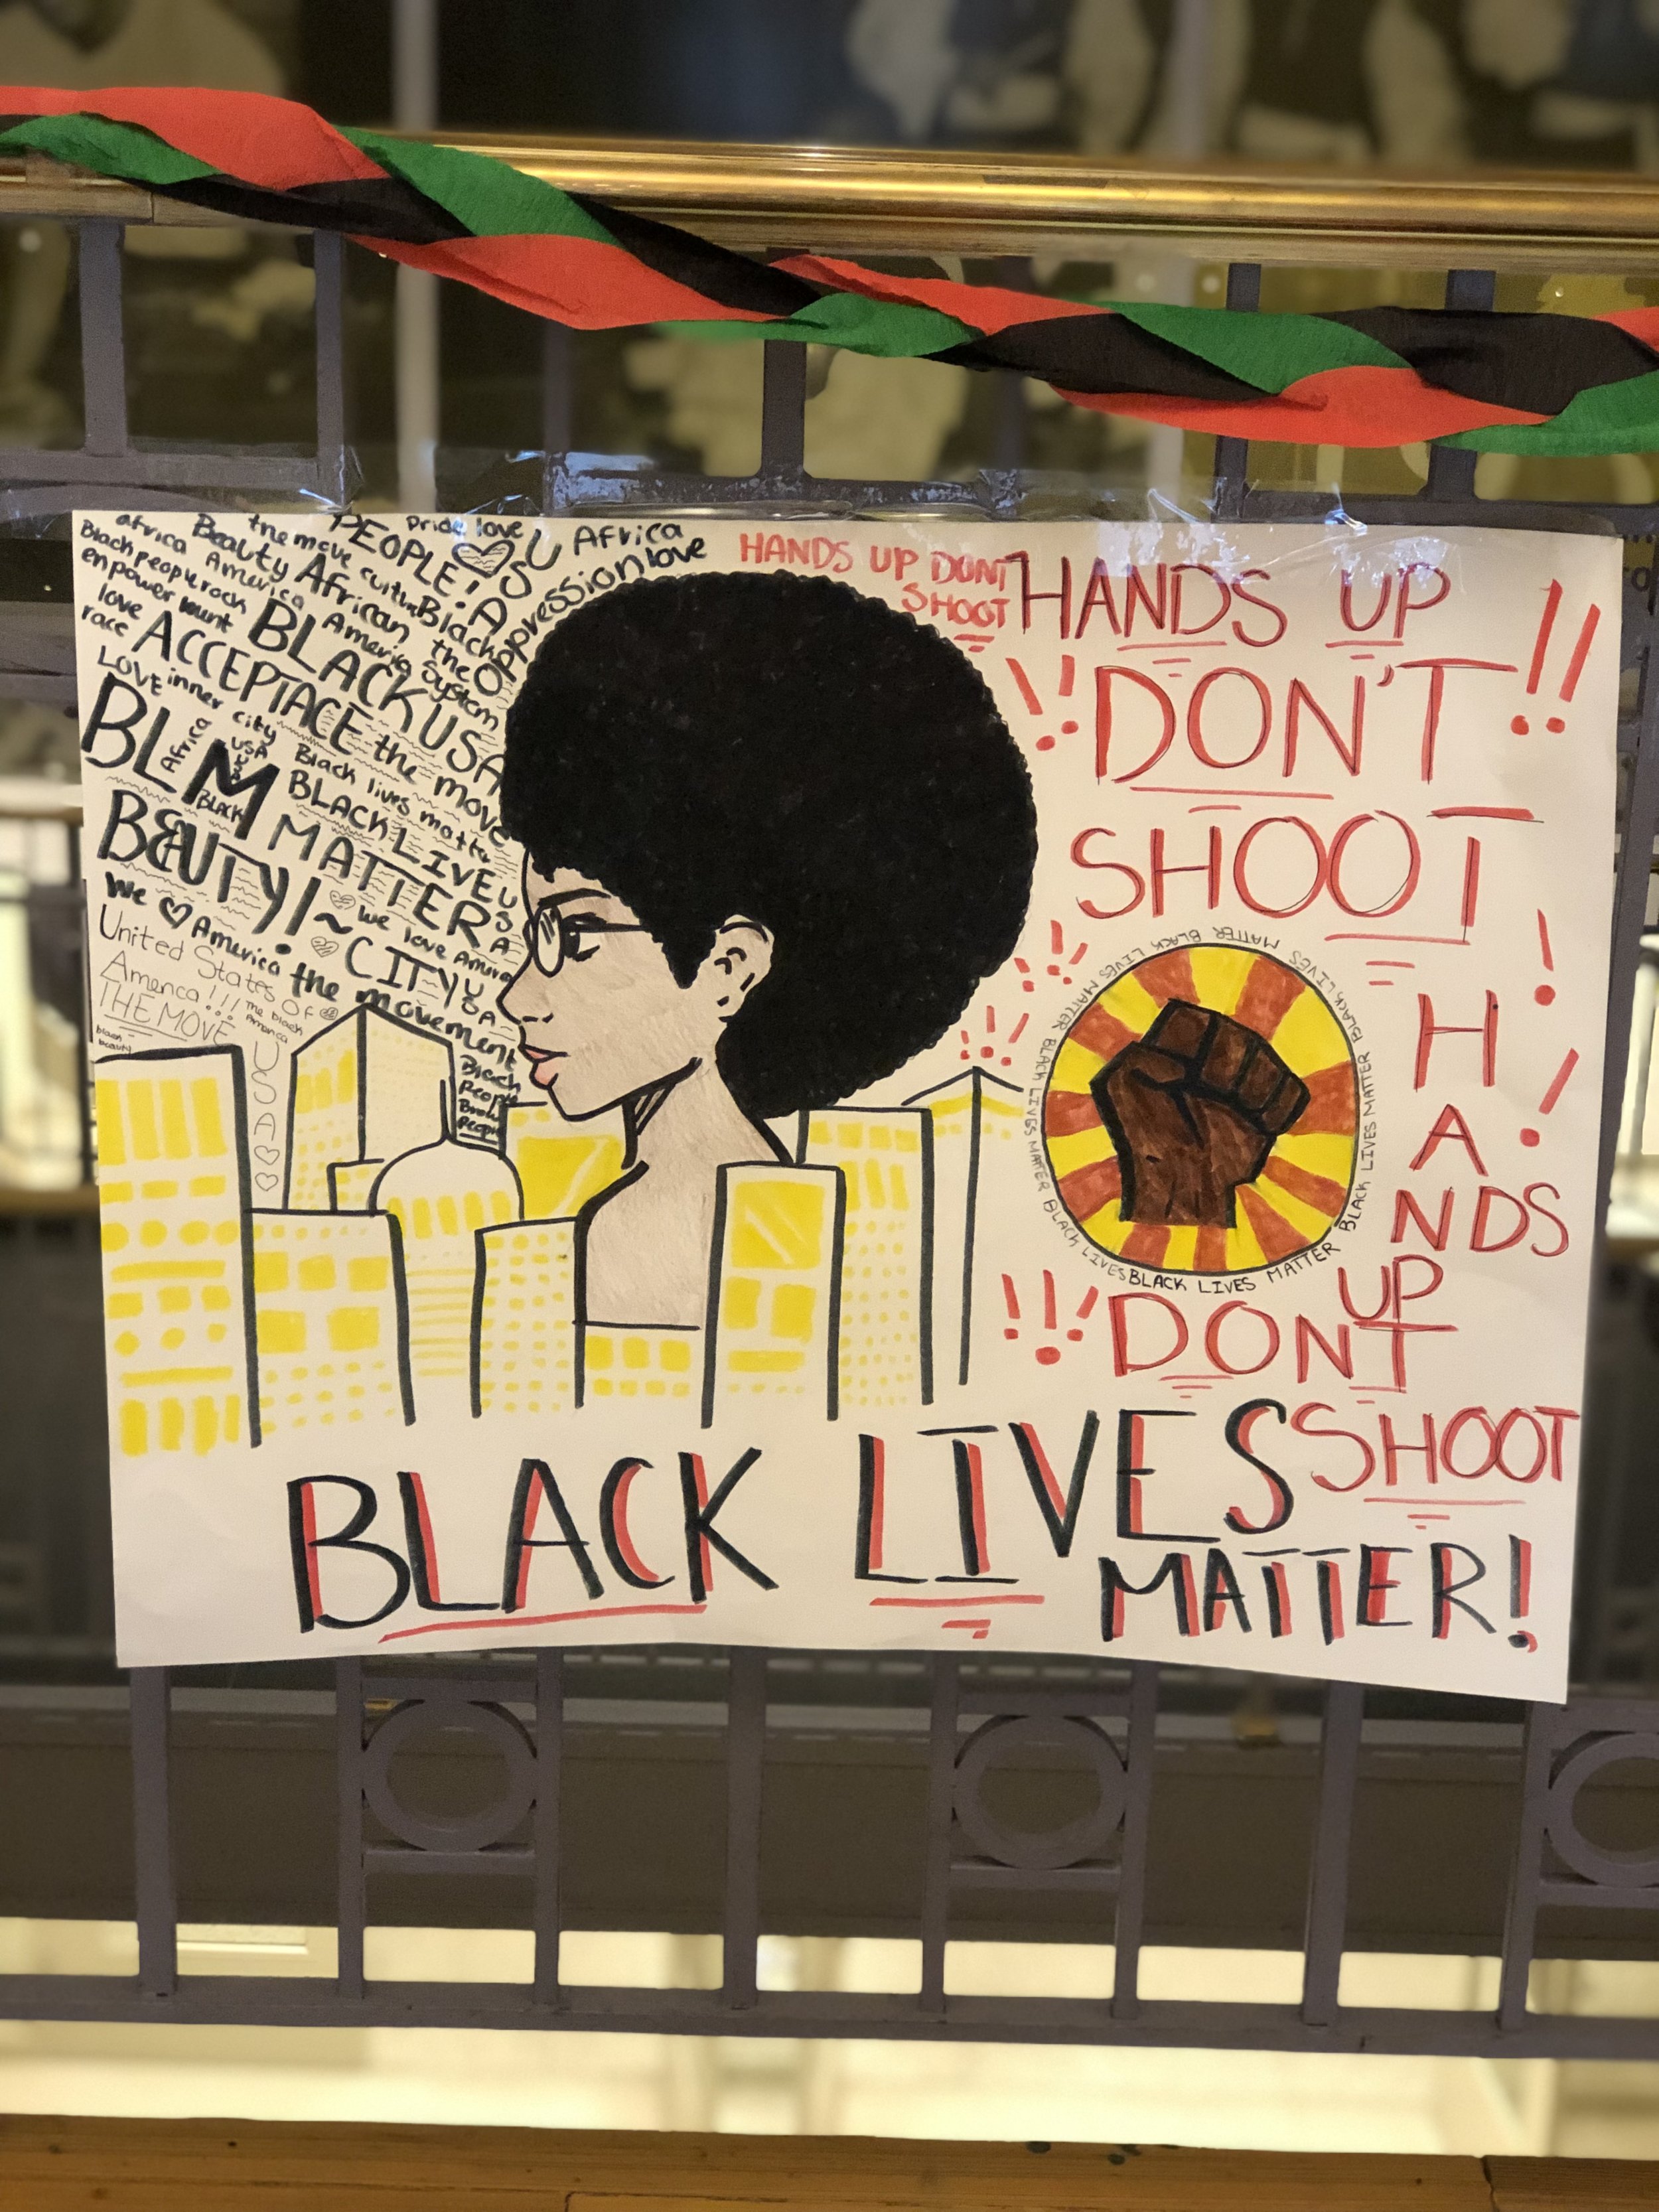 PEOPLE!
pride love
USA
Africa
love
Oppression
the move
culture
Black
the
System
africa
Beauty
African
America
Black people rock
America
BLACK USA
empowerment
love
ACCEPTACE
the move
race
LOVE
inner city
Black lives matter
BLM
Africa
USA
BLACK
BLACK LIVES
MATTERS
USA
BEAUTY!
we love
CITY
USA
We ♡ America
the movement
United States Of
America!!!
the black
America
THE MOVE
black
beauty
USA
Black
People
Brown
People
HANDS UP DONT
SHOOT
HANDS UP
!!
!! DON'T
SHOOT
!
HANDS
!
UP
!!! DONT
SHOOT
BLACK LIVES MATTER BLACK LIVES MATTER BLACK LIVES MATTER BLACK LIVES MATTER BLACK LIVES MATTER BLACK LIVES
BLACK LIVES
MATTER!